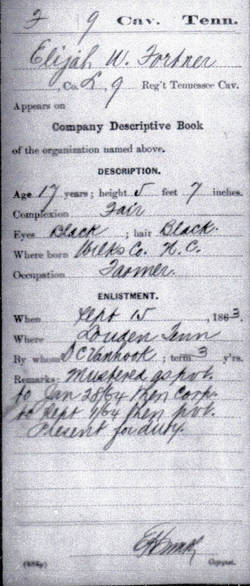 F 9 Cav. Tenn.
Elijah W. Fortner
, Co. L, 9 Reg't Tennessee Cav.
Appears on
Company Descriptive Book
of the organization named above.
DESCRIPTION.
Age 17 years; height 5 feet 7 inches.
Complexion Fair
Eyes Black; hair Black.
Where born Wilks Co. N.C.
Occupation Farmer.
ENLISTMENT.
When Sept 15, 1863.
Where Louden Tenn
By whom D C ; term 3 y'rs.
Remarks: Mustered as pvt.
to Jan 28/64 then Corp.
to Sept 1/64 then pvt.
Present for duty.
Copyist.